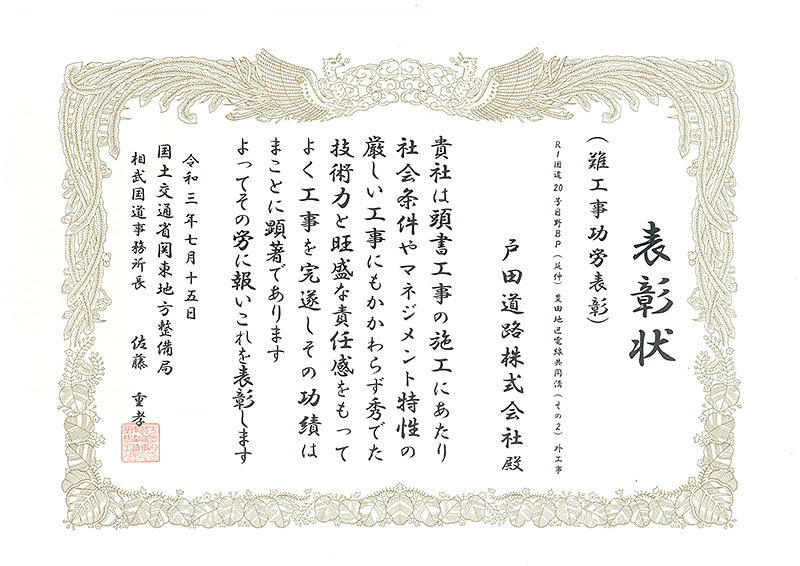 表彰状
(難工事功労表彰)
R1国道20号日野BP(延伸)豊田地区電線共同溝(その2)外工事
戸田道路株式会社殿
貴社は頭書工事の施工にあたり
社会条件やマネジメント特性の
厳しい工事にもかかわらず秀でた
技術力と旺盛な責任感をもって
よく工事を完遂しその功績は
まことに顕著であります
よってその労に報いこれを表彰します
令和三年七月十五日
国土交通省関東地方整備局
相武国道事務所長 佐藤 重孝